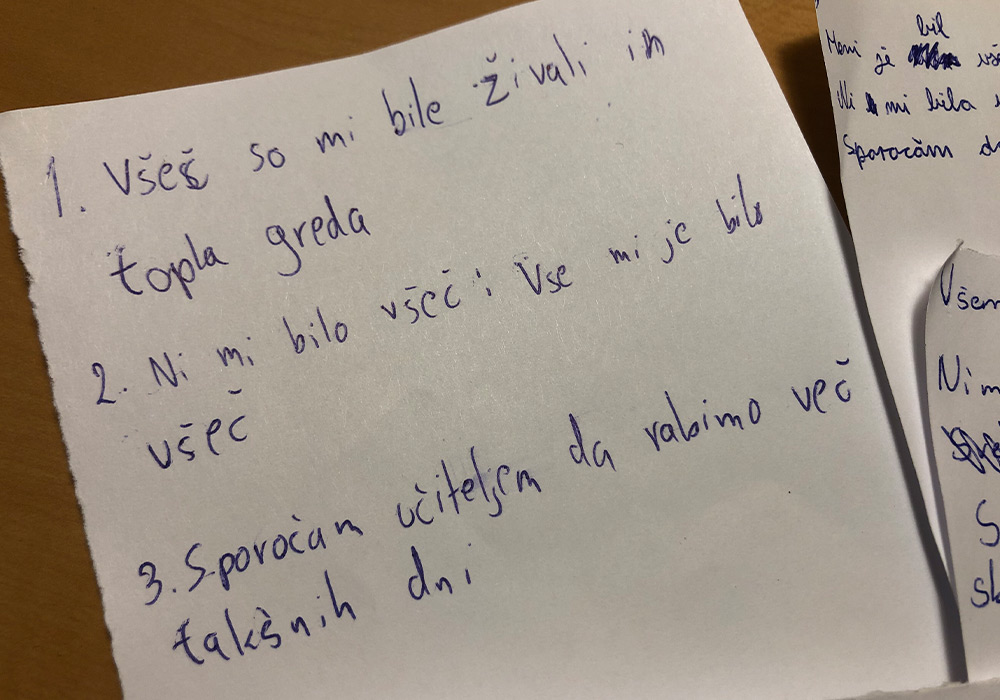 1. Všeš so mi bile živali in
topla greda
2. Ni mi bilo všeč: Vse mi je bilo
všeč
3. Sporočam učiteljem da rabimo več
takšnih dni
bil
Meni je
Ni mi bila
Sporočam
Všem